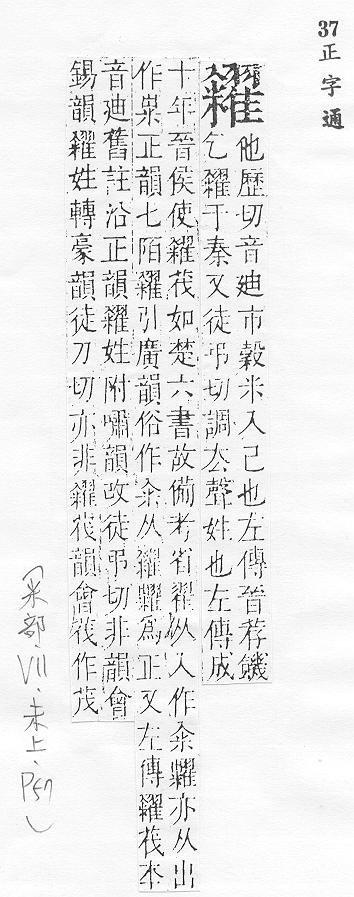 37 正字通
糴
他歷切音廸市穀米入己也左傳晉荐饑
乞糴于秦又徒弔切調去聲姓也左傳成
十年晉侯使糴茷如楚六書故備考省翟从入作籴糶亦从出
作粜正韻七陌糴引廣韻俗作籴从糴糶爲正又左傳糴茷本
音廸舊註沿正韻糴姓附嘯韻改徒弔切非韻會
錫韻糴姓轉豪韻徒刀切亦非糴茷韻會茷作茂
(米部、VII、未上、P57)